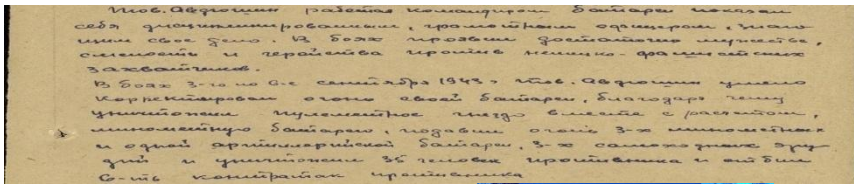 Тов. Авдюшин работая командиром батареи показал
себя дисциплинированным, грамотным офицером, знаю
щим свое дело. В боях проявил достаточно мужества,
смелости и геройства против немецко-фашистских
захватчиков.
В боях 3-го по 6-е сентября 1943 г тов. Авдюшин умело
корректировал огонь своей батареи, благодаря чему
уничтожен пулеметное гнездо вместе с расчетом,
минометную батарею, подавил огонь 3-х минометных
и одной артиллерийской батареи, 3-х самоходных ору
дий и уничтожил 35 человек противника и отбил
6-ть контратак противника